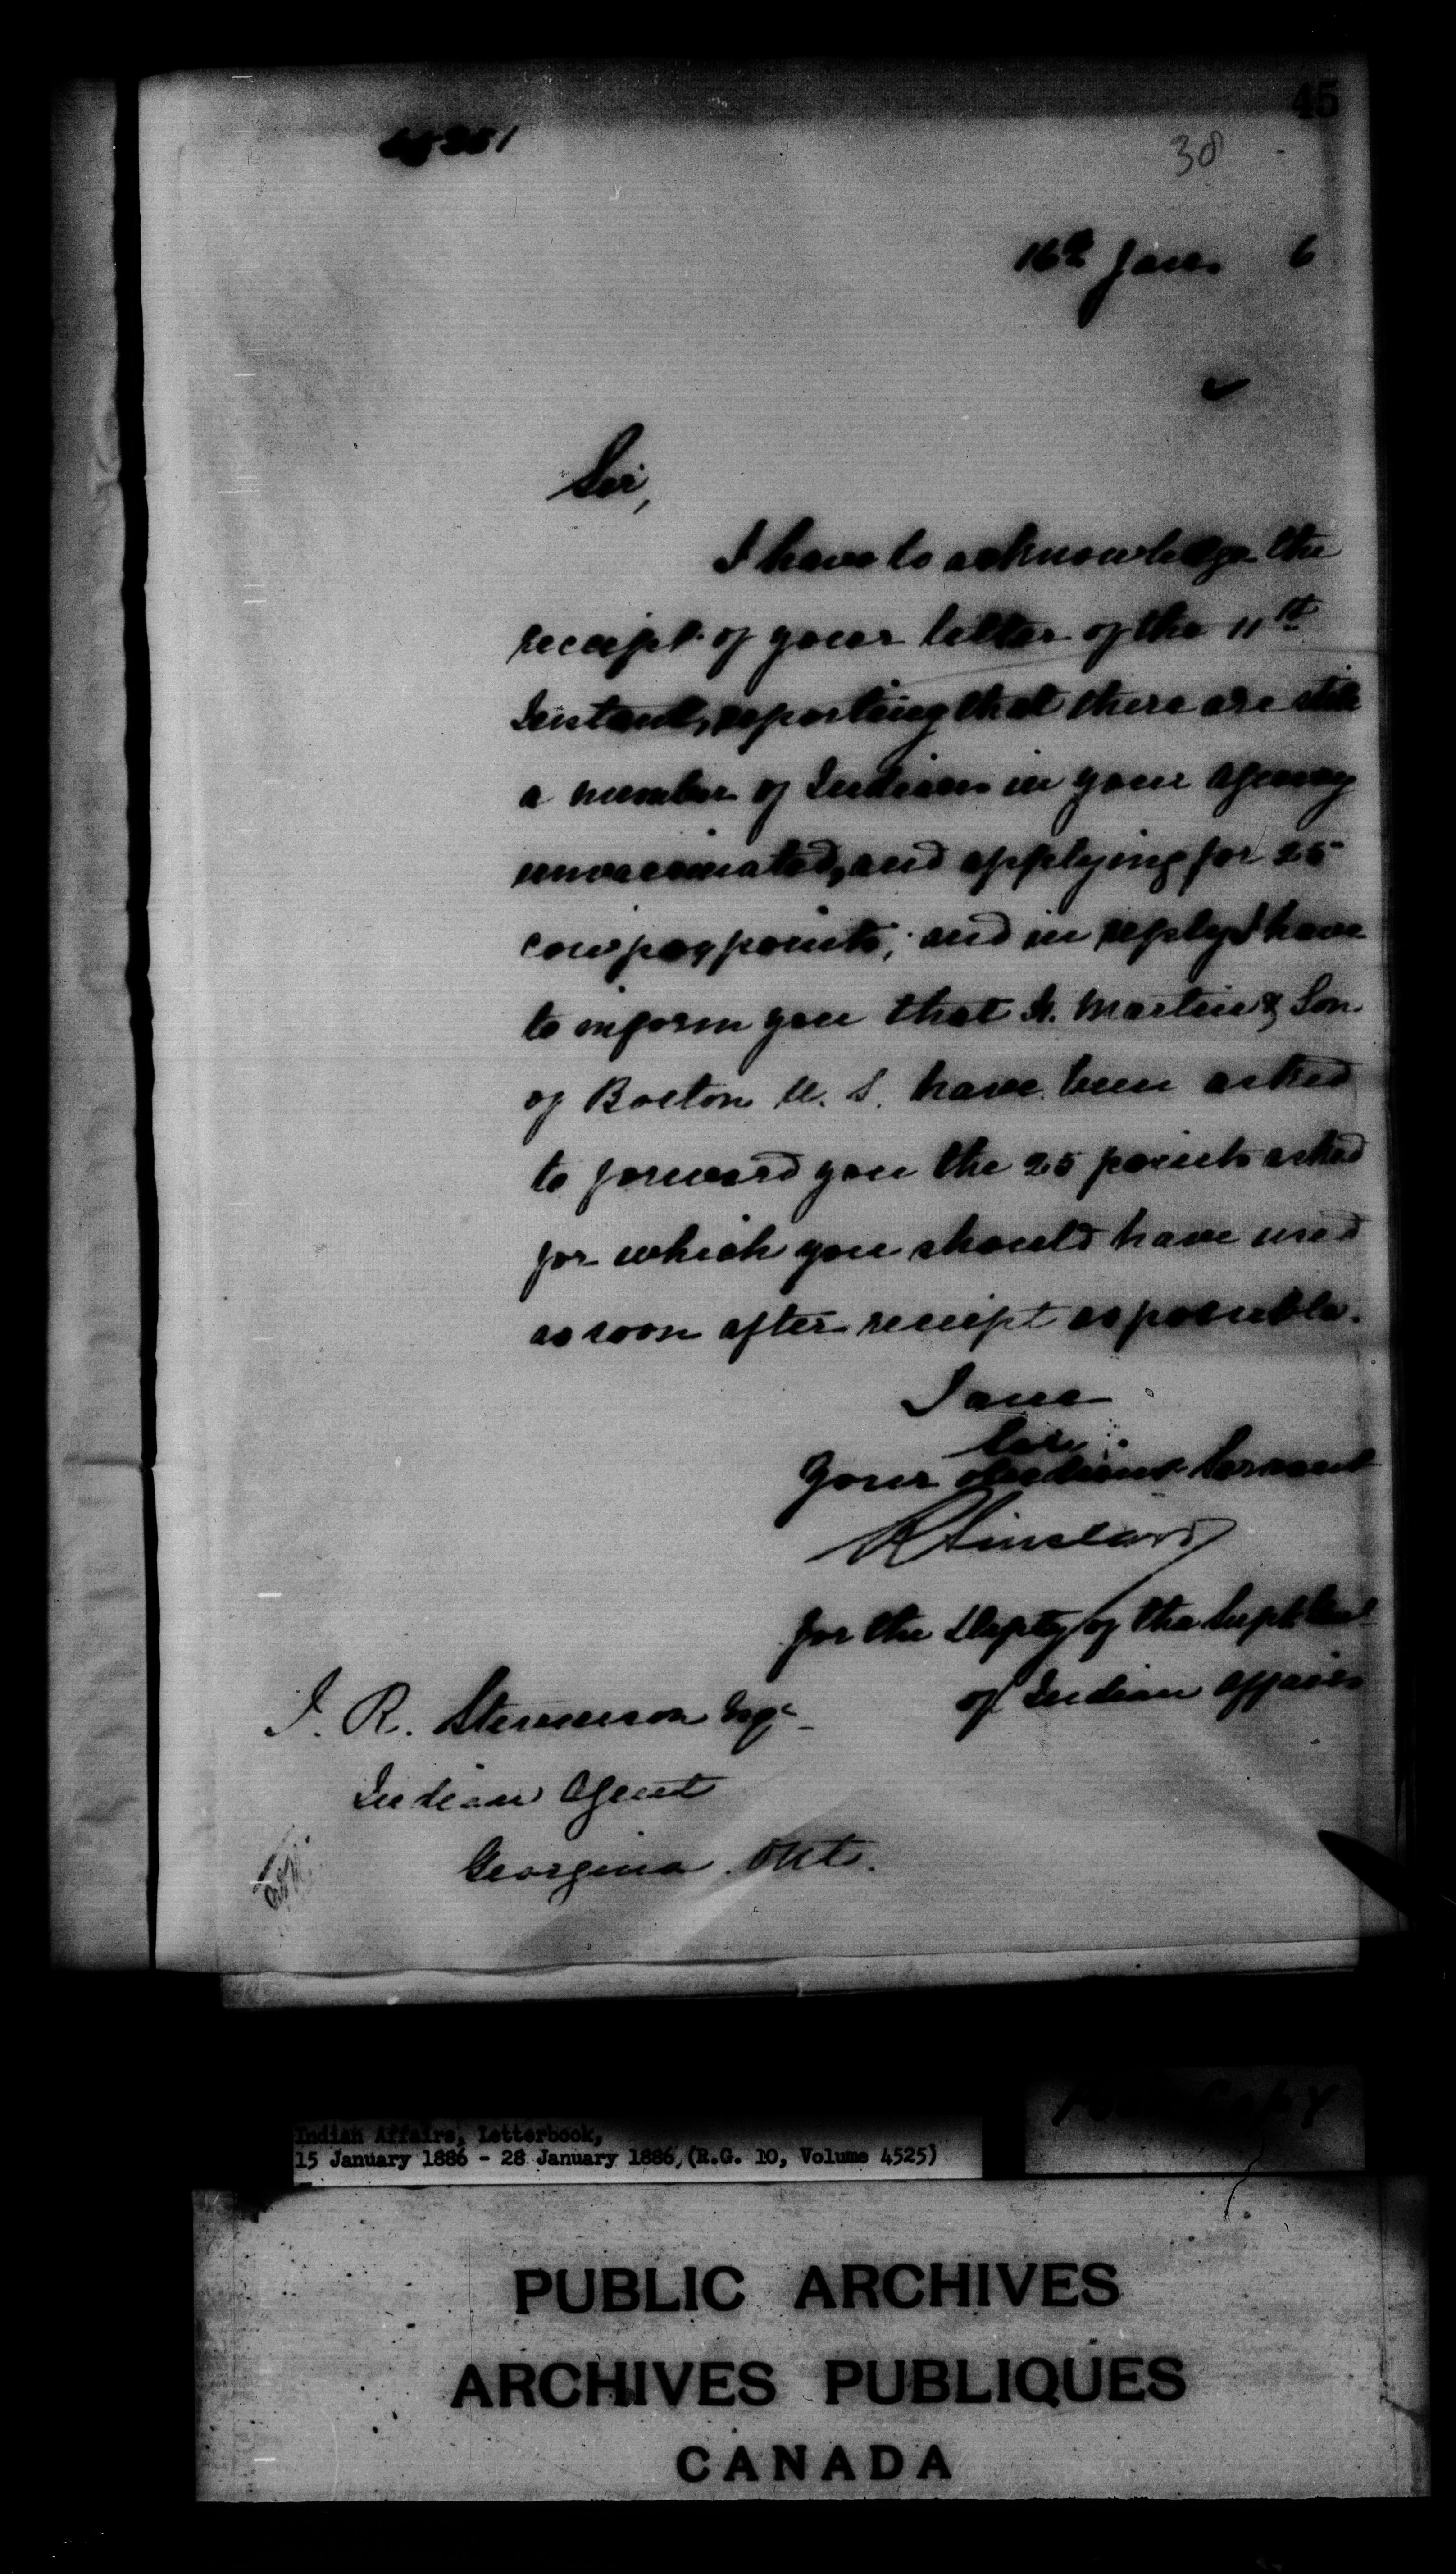 45
38
16th Jany 6
Sir,
I have to acknowledge the
receipt of your letter of the 11th
Instant, reporting that there are still
a number of Indians in your agency
unvaccinated, and applying for 25
cowpox points; and in reply I have
to inform you that Martin & Son
of Boston U. S. have been asked
to forward you the 25 points asked
for which you should have used
as soon after receipt as possible.
I am
Sir
Your obedient Servant
R Sinclair
for the Depty of the Supt Genl
of Indian Affairs
J. R. Stevenson Esqe
Indian Agent
Georgina Ont.
Indian Affairs, Letterbook,
15 January 1886 - 28 January 1886, (R.G. 10, Volume 4525)
Poor Copy
PUBLIC ARCHIVES
ARCHIVES PUBLIQUES
CANADA